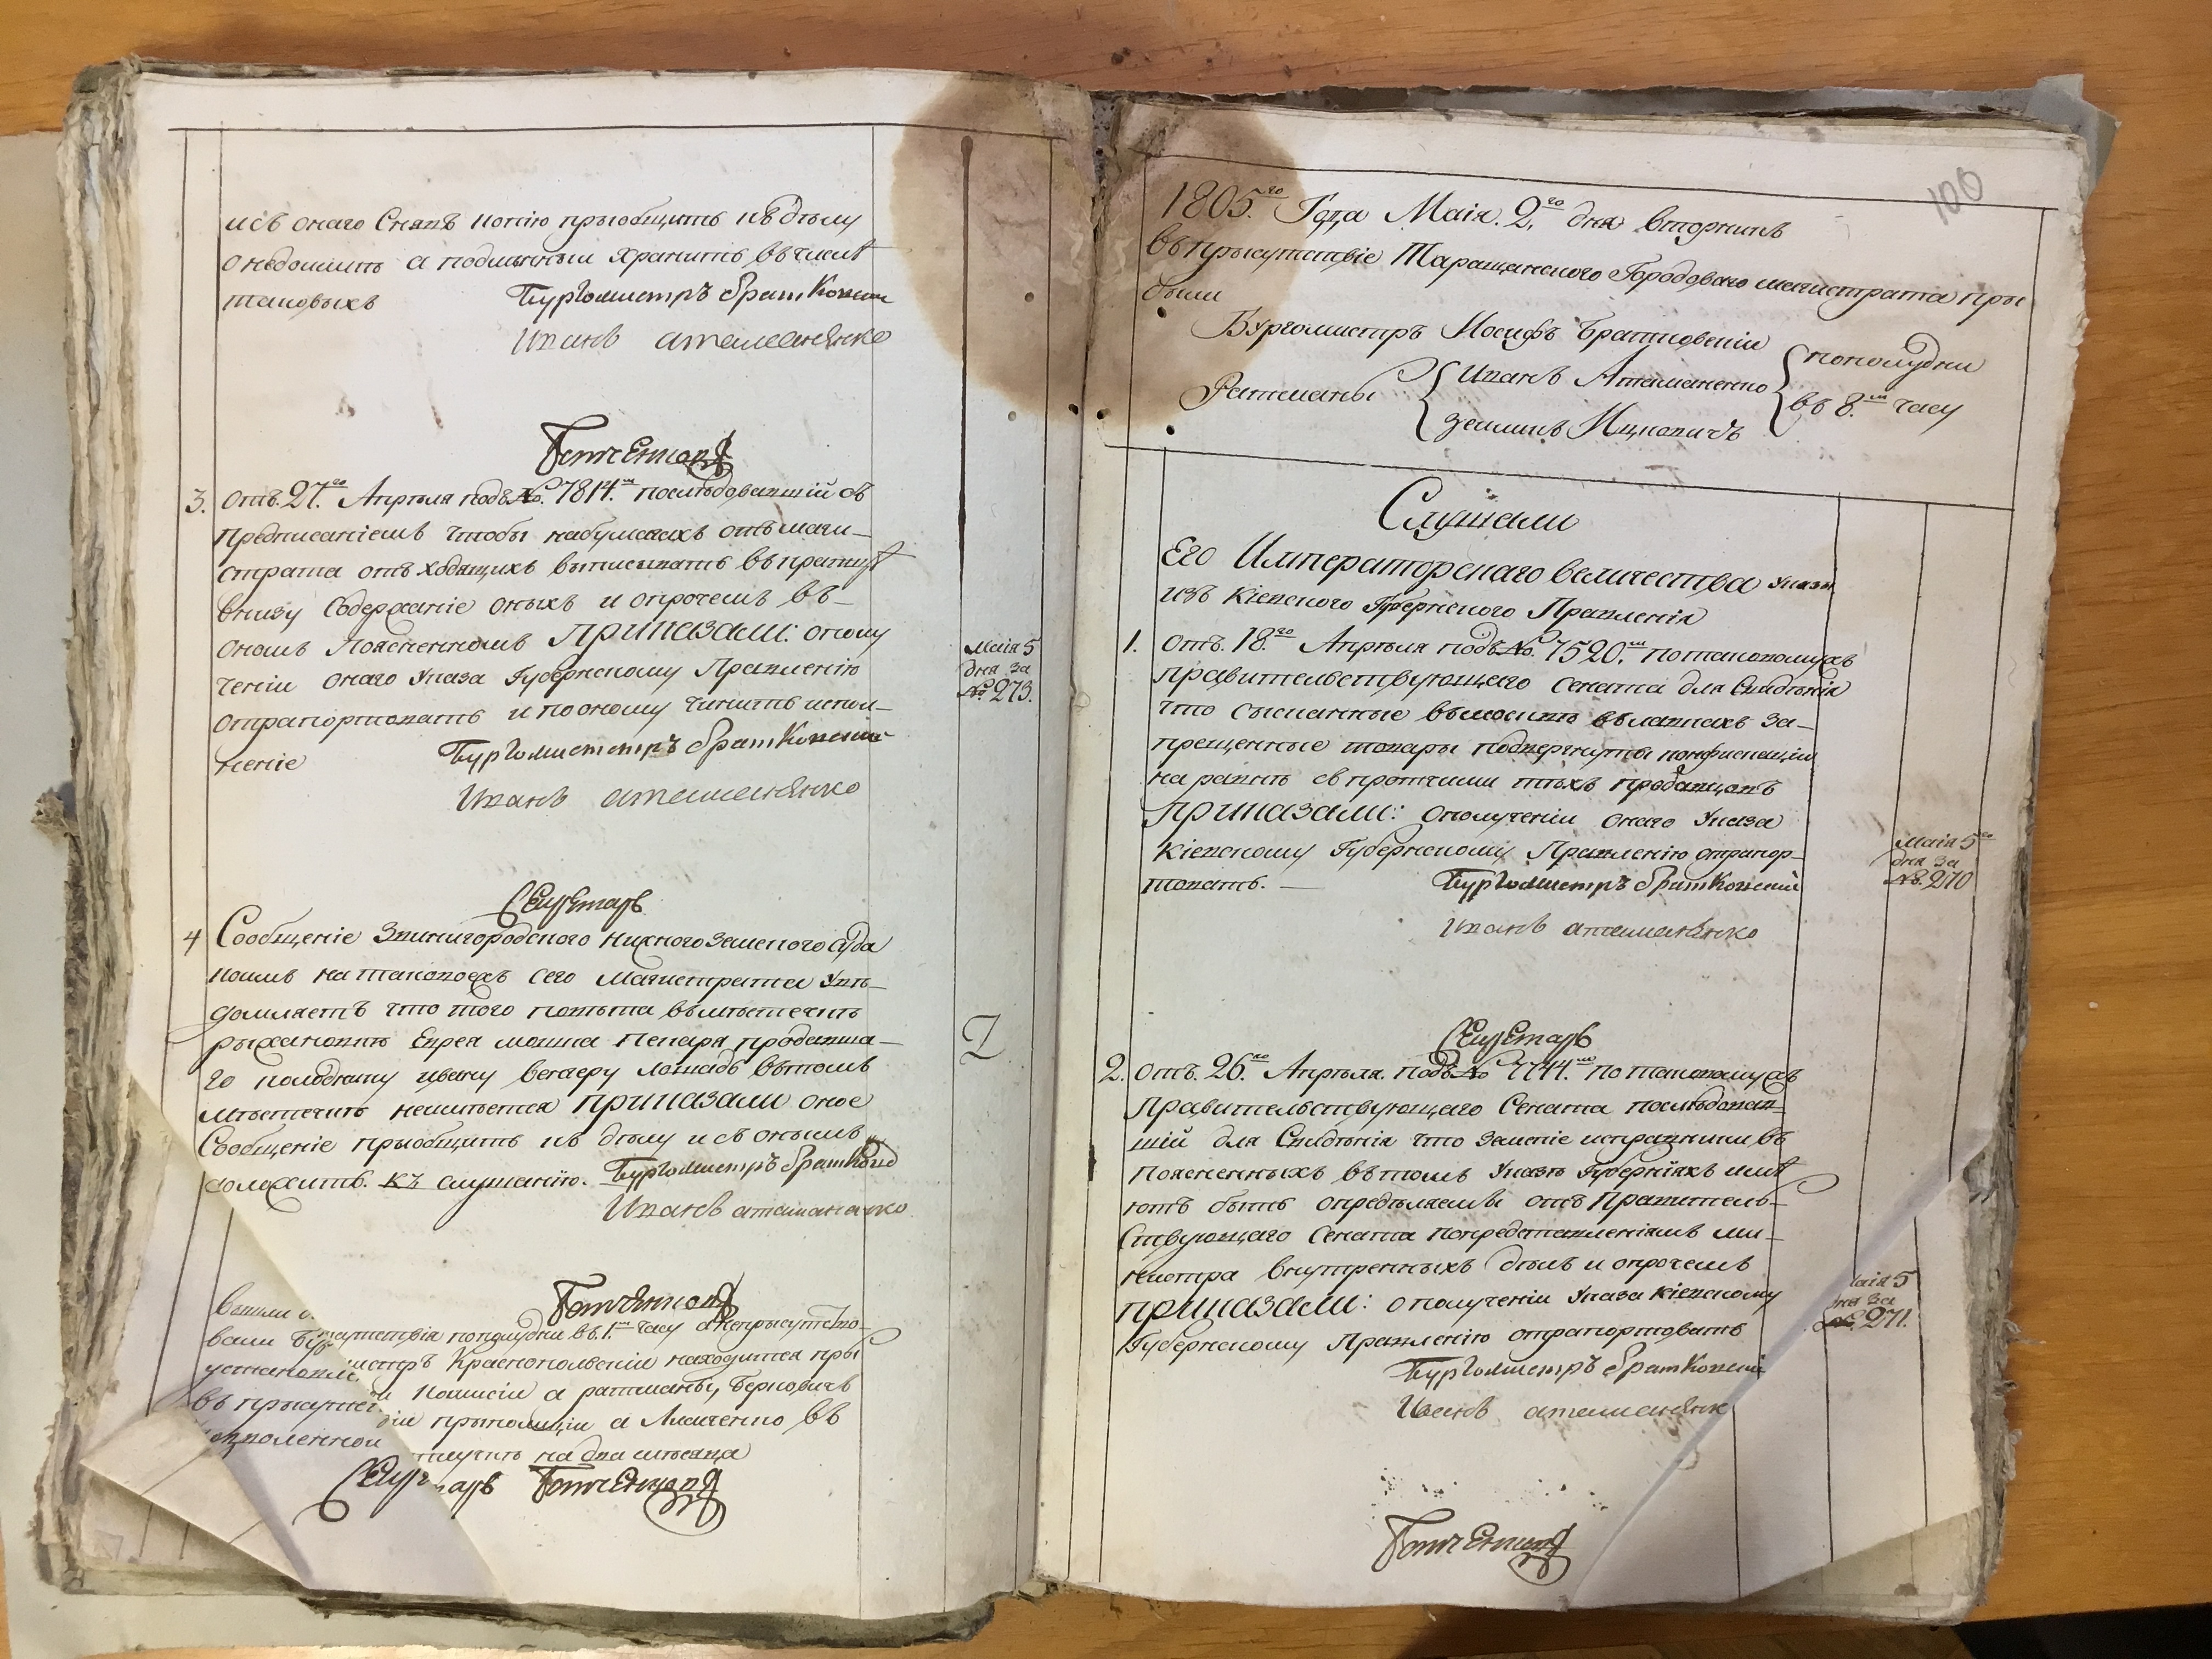 и съ онаго Снявъ копію пріобщить къ дѣлу
а подлинный хранить въ числѣ
таковыхъ Бургомистръ Братковски
Иванъ атаманенко
3. Отъ 27.го Апрѣля подъ № 7814.м послѣдовавшій съ
Предписаніемъ чтобы на бумагахъ отъ маги-
страта отъходящихъ выписывать въ кратцѣ
внизу Содержаніе оныхъ и опрочемъ въ-
ономъ Поясненномъ Приказали: о полу
ченіи онаго Указа Губернскому Правленію
отрапортовать и по оному чинить испол-
неніе Бургомистръ Братковскій
Иванъ атаманенко
Маія 5
дня за
№ 273.
Секретарь
4 Сообщеніе Звинигородского нижного земского суда
коимъ на таковоежъ сего Магистрата Увѣ-
домляетъ что того повѣта въ мѣстечкѣ
рыжановкѣ Еврея мошка Пекаря продавша-
го колодному ивану венгеру лошадь въ томъ
мѣстечкѣ неимѣется Приказали оное
Сообщеніе пріобщить къ дѣлу и съ онымъ
доложить. къ слушанію. Бургомистръ Братковс
Иванъ атаманенко
вышли
вали Бур сутствія пополудни въ 1.м часу а неприсутство-
Краснопольскій находится при
комисіи а ратманы, Берковичъ
въ
на два мѣсяца
Секр тарь
100
1805.го Года Маія. 2.го дня вторникъ
въ присутствіе Таращанского Городоваго магистрата при
были
Бургомистръ Иосифъ Братковскій
Ратманы Иванъ Атаманенко
пополудни
въ 8.м часу
Ицковичъ
Слушали
Его Императорскаго величества Указы
изъ Кіевского Губернского Правленія
1. Отъ 18.го Апрѣля подъ № 7520.м по таковомужъ
правителствующаго Сената для Свидѣнія
что сысканные въ москвѣ въ лавкахъ за-
прещенные товары подвергнуты конфискаціи
на равнѣ съ протчими тѣхъ продавцовъ
Приказали: о полученіи онаго Указа
Кіевскому Губернскому Правленію отрапор-
товать. — Бургомистръ Братковскій
Иванъ атаманенко
Маія 5го
дня за
№ 270
Секретарь
2. Отъ 26.го Апрѣля. подъ № 7744.м по таковомужъ
Правительствующаго Сената послѣдовав-
шій для Свидѣнія что земскіе исправники въ
Поясненныхъ въ томъ Указѣ Губерніяхъ имѣ
ютъ быть опредѣляемы отъ Правитель-
Ствующаго Сената по представленіямъ ми-
нистра внутренныхъ дѣлъ и опрочемъ
Приказали: о полученіи Указа Кіевскому
Губернскому Правленію отрапортовать
Бургомистръ Братковскій
Иванъ атаманенк
аія 5
дня за
№ 271.